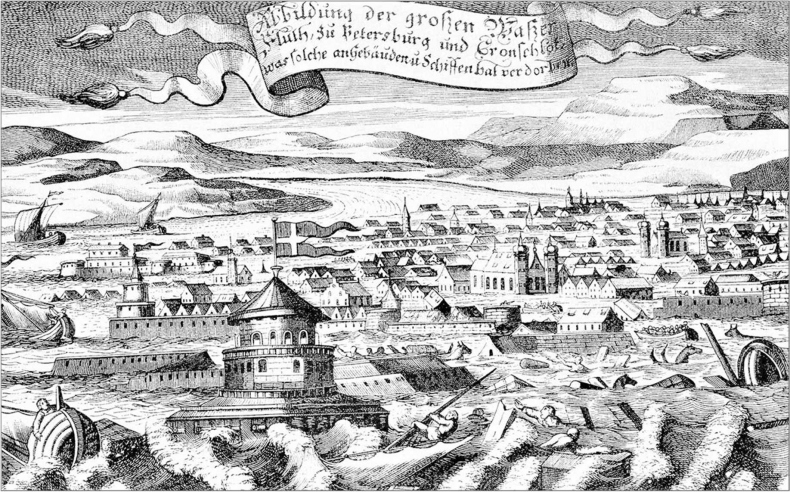 Abbildung der grossen Wasser
Fluth, zu Petersburg und Cronschlot,
was solche an gebäuden u Schiffen hat verdorben